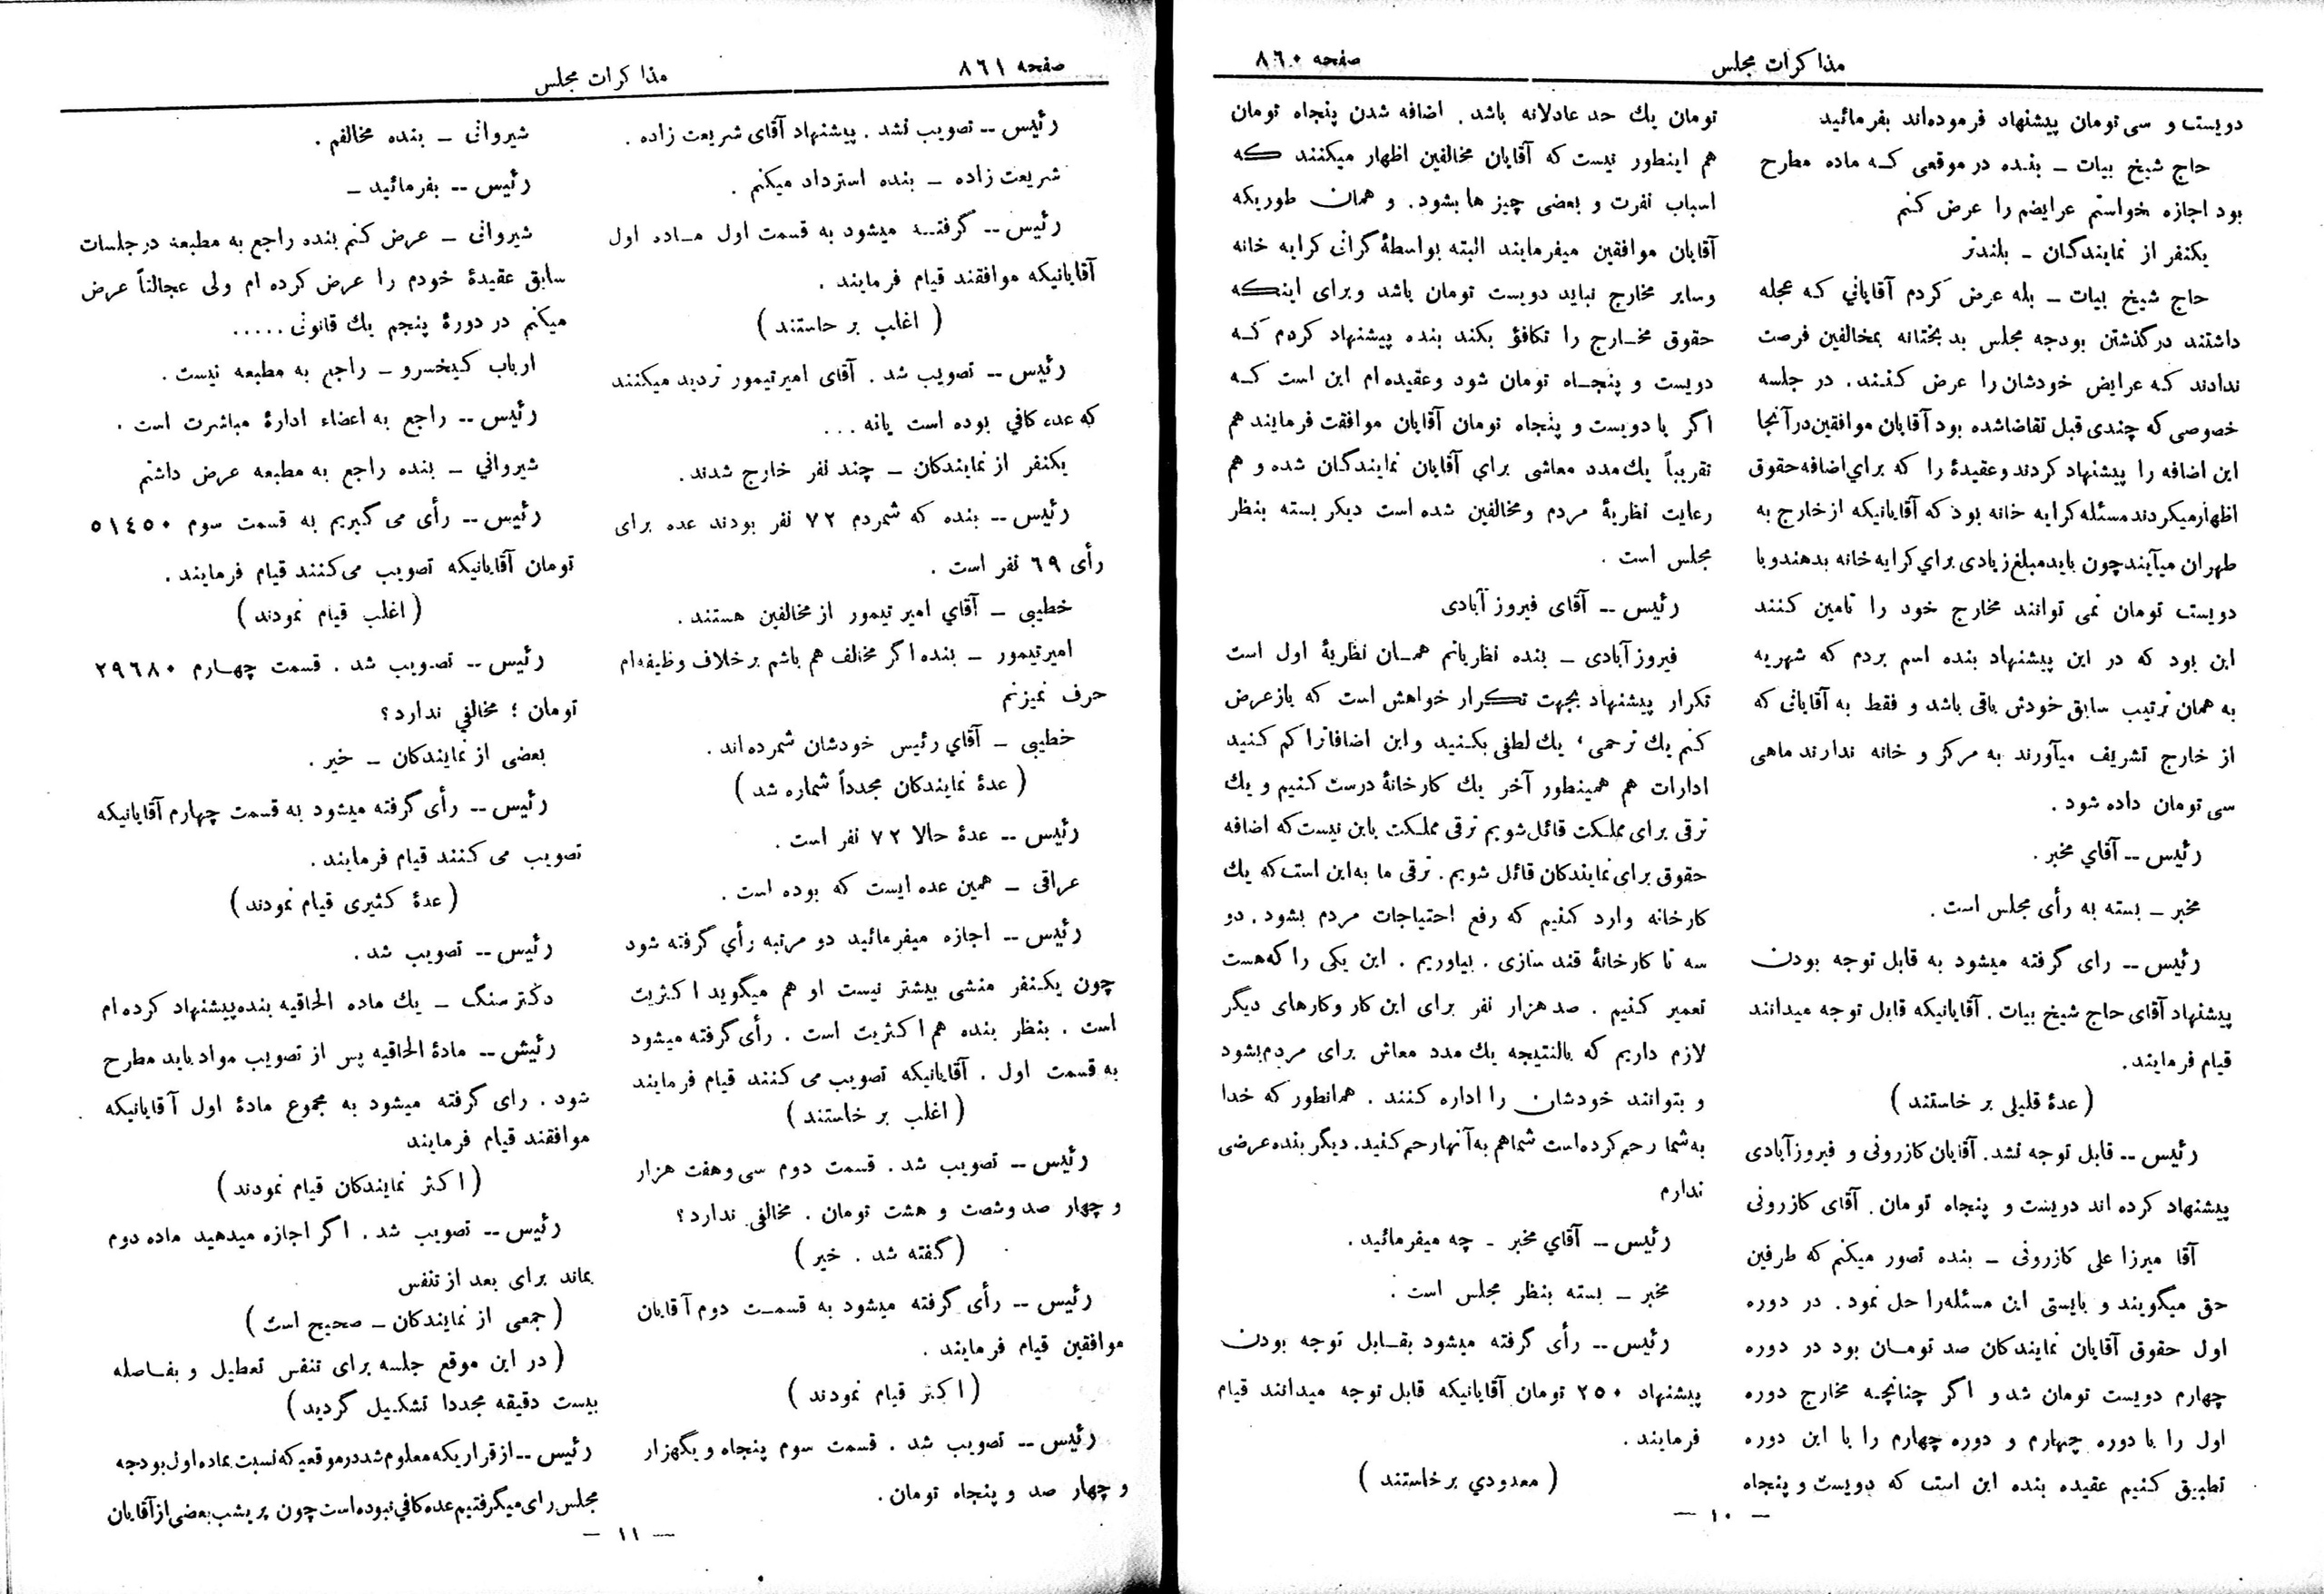 مذاکرات مجلس
صفحه ۸٦۰
دویست و سی تومان پیشنهاد فرموده‌اند بفرمائید
حاج شیخ بیات ـ بنده در موقعی که ماده مطرح
بود اجازه خواستم عرایضم را عرض کنم
یکنفر از نمایندگان ـ بلندتر
حاج شیخ بیات ـ بله عرض کردم آقایانی که عجله
داشتند درگذشتن بودجه مجلس بدبختانه بمخالفین فرصت
ندادند که عرایض خودشان را عرض کنند. در جلسه
خصوصی که چندی قبل تقاضا شده بود آقایان موافقین در آنجا
این اضافه را پیشنهاد کردند و عقیدهٔ را که برای اضافه حقوق
اظهار میکردند مسئله کرایه خانه بود که آقایانیکه از خارج به
طهران میآیند چون باید مبلغ زیادی برای کرایه خانه بدهند و با
دویست تومان نمی توانند مخارج خود را تامین کنند
این بود که در این پیشنهاد بنده اسم بردم که شهریه
به همان ترتیب سابق خودش باقی باشد و فقط به آقایانی که
از خارج تشریف میآورند به مرکز و خانه ندارند ماهی
سی تومان داده شود .
رئیس -- آقای مخبر .
مخبر ـ بسته به رأی مجلس است .
رئیس -- رای گرفته میشود به قابل توجه بودن
پیشنهاد آقای حاج شیخ بیات . آقایانیکه قابل توجه میدانند
قیام فرمایند.
(عدهٔ قلیلی بر خاستند)
رئیس -- قابل توجه نشد. آقایان کازرونی و فیروزآبادی
پیشنهاد کرده اند دویست و پنجاه تومان. آقای کازرونی
آقا میرزا علی کازرونی ـ بنده تصور میکنم که طرفین
حق میگویند و بایستی این مسئله را حل نمود. در دوره
اول حقوق آقایان نمایندکان صد تومان بود در دوره
چهارم دویست تومان شد و اگر چنانچه مخارج دوره
اول را با دوره چهارم و دوره چهارم را با این دوره
تطبیق کنیم عقیده بنده این است که دویست و پنجاه
تومان یك حد عادلانه باشد. اضافه شدن پنجاه تومان
هم اینطور نیست که آقایان مخالفین اظهار میکنند که
اسباب نفرت و بعضی چیز ها بشود. و همان طوریکه
آقایان موافقین میفرمایند البته بواسطهٔ گرانی کرایه خانه
وسایر مخارج نباید دویست تومان باشد وبرای اینکه
حقوق مخارج را تکافؤ بکند بنده پیشنهاد کردم که
دویست و پنجاه تومان شود وعقیده‌ام این است که
اگر با دویست و پنجاه تومان آقایان موافقت فرمایند هم
تقریباً یك مدد معاشی برای آقایان نمایندگان شده و هم
رعایت نظریهٔ مردم ومخالفین شده است دیکر بسته بنظر
مجلس است .
رئیس -- آقای فیروز آبادی
فیروز آبادی ـ بنده نظریاتم همان نظریهٔ اول است
تکرار پیشنهاد بجهت تکرار خواهش است که باز عرض
کنم یك ترحمی، یك لطفی بکنید و این اضافاترا کم کنید
ادارات هم همینطور آخر یك کارخانهٔ درست کنیم و یك
ترقی برای مملکت قائل شویم ترقی مملکت باین نیست که اضافه
حقوق برای نمایندکان قائل شویم. ترقی ما به این است که یك
کارخانه وارد کنیم که رفع احتیاجات مردم بشود. دو
سه تا کارخانهٔ قند سازی . بیاوریم . این یکی را که هست
تعمیر کنیم . صد هزار نفر برای این کار وکارهای دیگر
لازم داریم که بالنتیجه یك مدد معاش برای مردم بشود
و بتوانند خودشان را اداره کنند . همانطور که خدا
به شما رحم کرده است شما هم به آنها رحم کنید. دیگر بنده عرضی
ندارم
رئیس ـ آقای مخبر ـ چه میفرمائید .
مخبر ـ بسته بنظر مجلس است .
رئیس -- رأی گرفته میشود بقابل توجه بودن
پیشنهاد ۲۵۰ تومان آقایانیکه قابل توجه میدانند قیام
فرمایند .
(معدودی برخاستند)
— ۱۰ —
صفحه ۸٦۱
مذاکرات مجلس
رئیس -- تصویب نشد . پیشنهاد آقای شریعت زاده .
شریعت زاده ـ بنده استرداد میکنم .
رئیس -- گرفته میشود به قسمت اول ماده اول
آقایانیکه موافقند قیام فرمایند .
(اغلب بر حاستند)
رئیس -- تصویب شد . آقای امیرتیمور تردید میکنند
که عده کافی بوده است یانه ...
یکنفر از نمایندکان ـ چند نفر خارج شدند .
رئیس -- بنده که شمردم ۷۲ نفر بودند عده برای
رأی ٦۹ نفر است .
خطیبی ـ آقای امیر تیمور از مخالفین هستند .
امیرتیمور ـ بنده اکر مخالف هم باشم برخلاف وظیفه‌ام
حرف نمیزنم
خطیبی ـ آقای رئیس خودشان شمرده‌اند .
(عدهٔ نمایندکان مجدداً شماره شد)
رئیس -- عدهٔ حالا ۷۲ نفر است .
عراقی ـ همین عده ایست که بوده است .
رئیس -- اجازه میفرمائید دو مرتبه رأی گرفته شود
چون یکنفر منشی بیشتر نیست او هم میگوید اکثریت
است . بنظر بنده هم اکثریت است . رأی گرفته میشود
به قسمت اول . آقایانیکه تصویب می کنند قیام فرمایند
(اغلب بر خاستند)
رئیس -- تصویب شد . قسمت دوم سی وهفت هزار
و چهار صد وشصت و هشت تومان . مخالفی ندارد؟
(گفته شد . خیر)
رئیس -- رأی گرفته میشود به قسمت دوم آقایان
موافقین قیام فرمایند .
(اکثر قیام نمودند)
رئیس -- تصویب شد . قسمت سوم پنجاه ویگهزار
و چهار صد و پنجاه تومان .
شیروانی ـ بنده مخالفم .
رئیس -- بفرمائید ـ
شیروانی ـ عرض کنم بنده راجع به مطبعه در جلسات
سابق عقیدهٔ خودم را عرض کرده ام ولی عجالتاً عرض
میکنم در دورهٔ پنجم یك قانونی .....
ارباب کیخسرو ـ راجع به مطبعه نیست .
رئیس -- راجع به اعضاء ادارهٔ مباشرت است .
شیروانی ـ بنده راجع به مطبعه عرض داشتم
رئیس -- رأی می گیریم به قسمت سوم ۵۱٤۵۰
تومان آقایانیکه تصویب می‌کنند قیام فرمایند .
(اغلب قیام نمودند)
رئیس -- تصویب شد . قسمت چهارم ۲۹٦۸۰
تومان ؛ مخالفی ندارد؟
بعضی از نمایندکان ـ خیر .
رئیس -- رأی گرفته میشود به قسمت چهارم آقایانیکه
تصویب می کنند قیام فرمایند .
(عدهٔ کثیری قیام نمودند)
رئیس -- تصویب شد .
دکتر سنگ ـ یك ماده الحاقیه بنده پیشنهاد کرده ام
رئیش -- مادهٔ الحاقیه پس از تصویب مواد باید مطرح
شود . رای گرفته میشود به مجموع مادهٔ اول آقایانیکه
موافقند قیام فرمایند
(اکثر نمایندکان قیام نمودند)
رئیس -- تصویب شد . اگر اجازه میدهید ماده دوم
بماند برای بعد از تنفس
(جمعی از نمایندکان ـ صحیح است)
(در این موقع جلسه برای تنفس تعطیل و بفاصله
بیست دقیقه مجددا تشکیل گردید)
رئیس -- از قراریکه معلوم شد در موقعیکه نسبت بماده اول بودجه
مجلس رای میگرفتیم عده کافی نبوده است چون پریشب بعضی از آقایان
— ۱۱ —